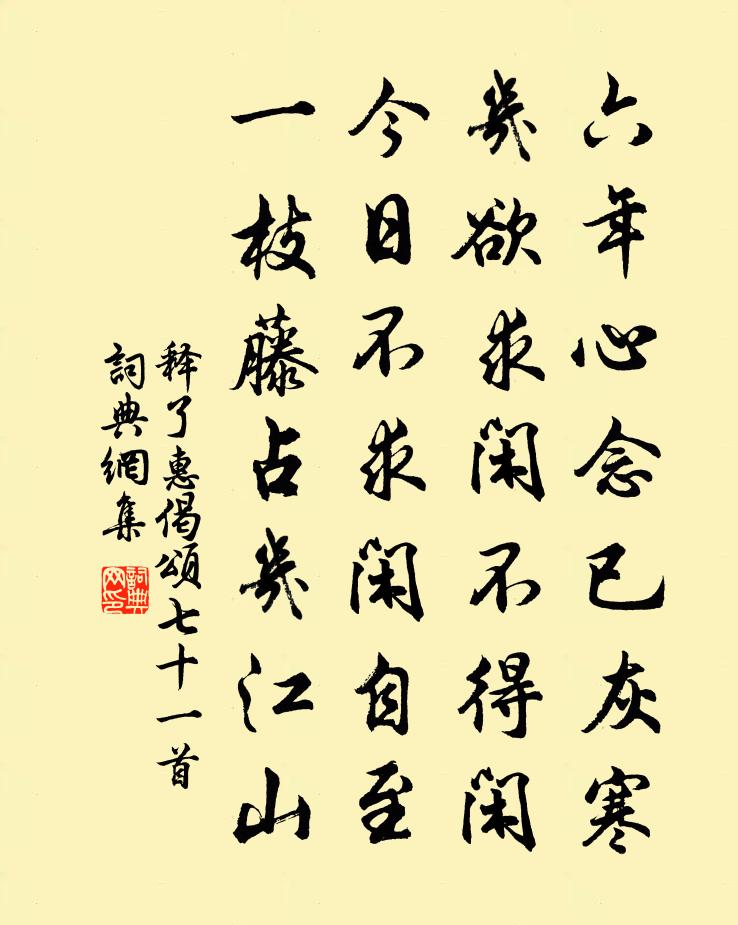 六年心念已灰寒
幾欲求閑不得閑
今日不求閑自至
一枝藤占幾江山
释了惠偈頌七十一首
詞典網集
詞典网印